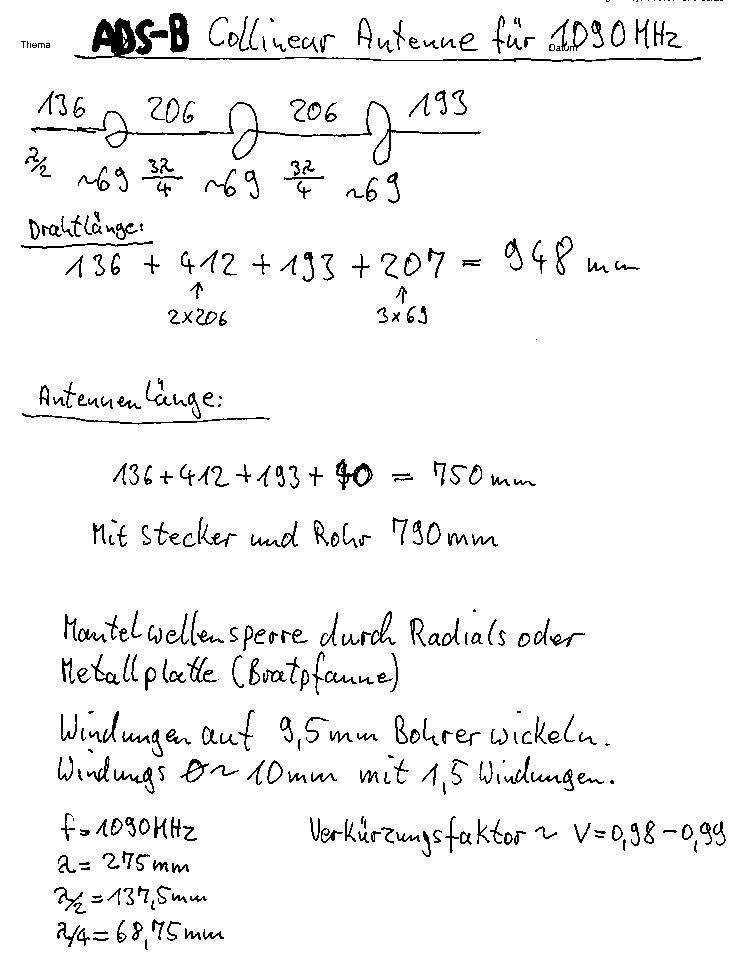 Thema ADS-B Collinear Antenne für 1090MHz
Datum
136 206 206 193
λ/2 ~69 3λ/4 ~69 3λ/4 ~69
Drahtlänge:
136 + 412 + 193 + 207 = 948 mm
↑ ↑
2x206 3x69
Antennenlänge:
136+412+193+ 10 = 750mm
Mit Stecker und Rohr 790mm
Mantelwellensperre durch Radials oder
Metallplatte (Bratpfanne)
Windungen auf 9,5mm Bohrer wickeln.
Windungs Ø~ 10mm mit 1,5 Windungen.
f=1090MHz Verkürzungsfaktor ~ V=0,98-0,99
λ= 275mm
λ/2=137,5mm
λ/4=68,75mm